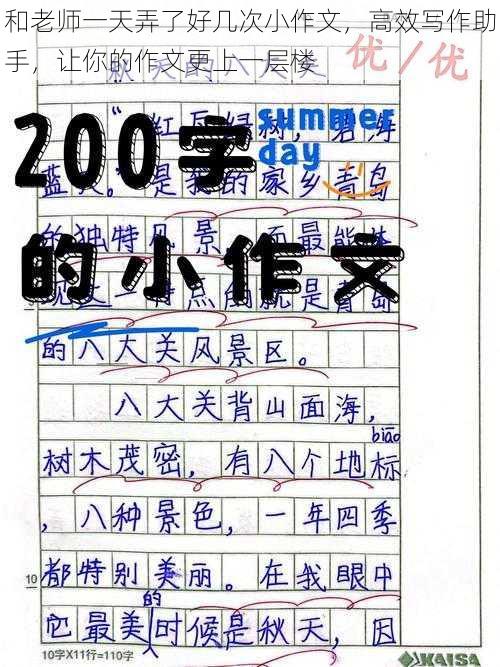 和老师一天弄了好几次小作文，高效写作助
手，让你的作文更上一层楼
优/优
秋天的八大关
200字
summer
day
"红瓦绿树，碧海
蓝天。"是我的家乡青岛
的独特风景，而最能体
的小作文
现这一特点的就是青岛
的八大关风景区。
八大关背山面海，
biāo
树木茂密，有八个地标
，八种景色，一年四季
10
都特别美丽。在我眼中
的
它最美时候是秋天，因
10字X11行=110字
KAISA